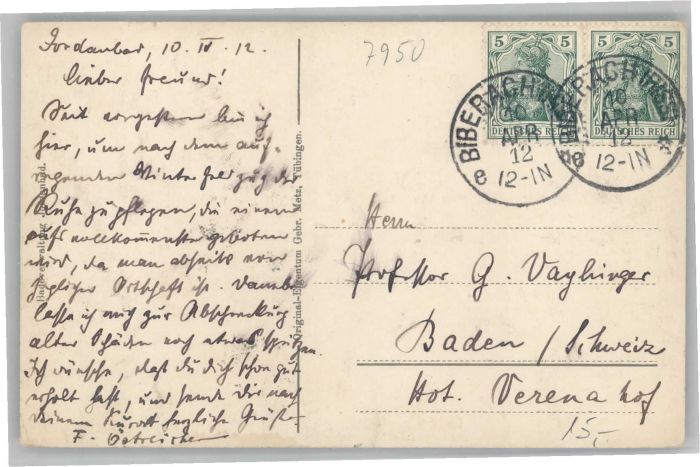 Jordanbad, 10. IV. 12.
Lieber Freund!
Seit vorgestern bin ich
hier, um nach dem auf-
regenden Winterfeldzug der
Ruhe zu pflegen, die einem
aufs vollkommenste geboten
wird, da man abseits von
jeglicher Ortschaft ist. Daneben
lasse ich mich zur Abschreckung
alter Schäden noch etwas spritzen.
Ich wünsche, daß du dich schon gut
erholt hast, und sende dir nach
deinem Kurort herzliche Grüße
F.
7950
5 5
5 5
DEUTSCHES REICH
DEUTSCHES REICH
BIBERACH
10
APR
12
12-1N
e
BIBERACH
10
APR
12
12-1N
e
Original-Eigentum Gebr. Metz, Tübingen.
Herrn
Professor G. Vayhinger
Baden / Schweiz
Hot. Verenahof
15,-